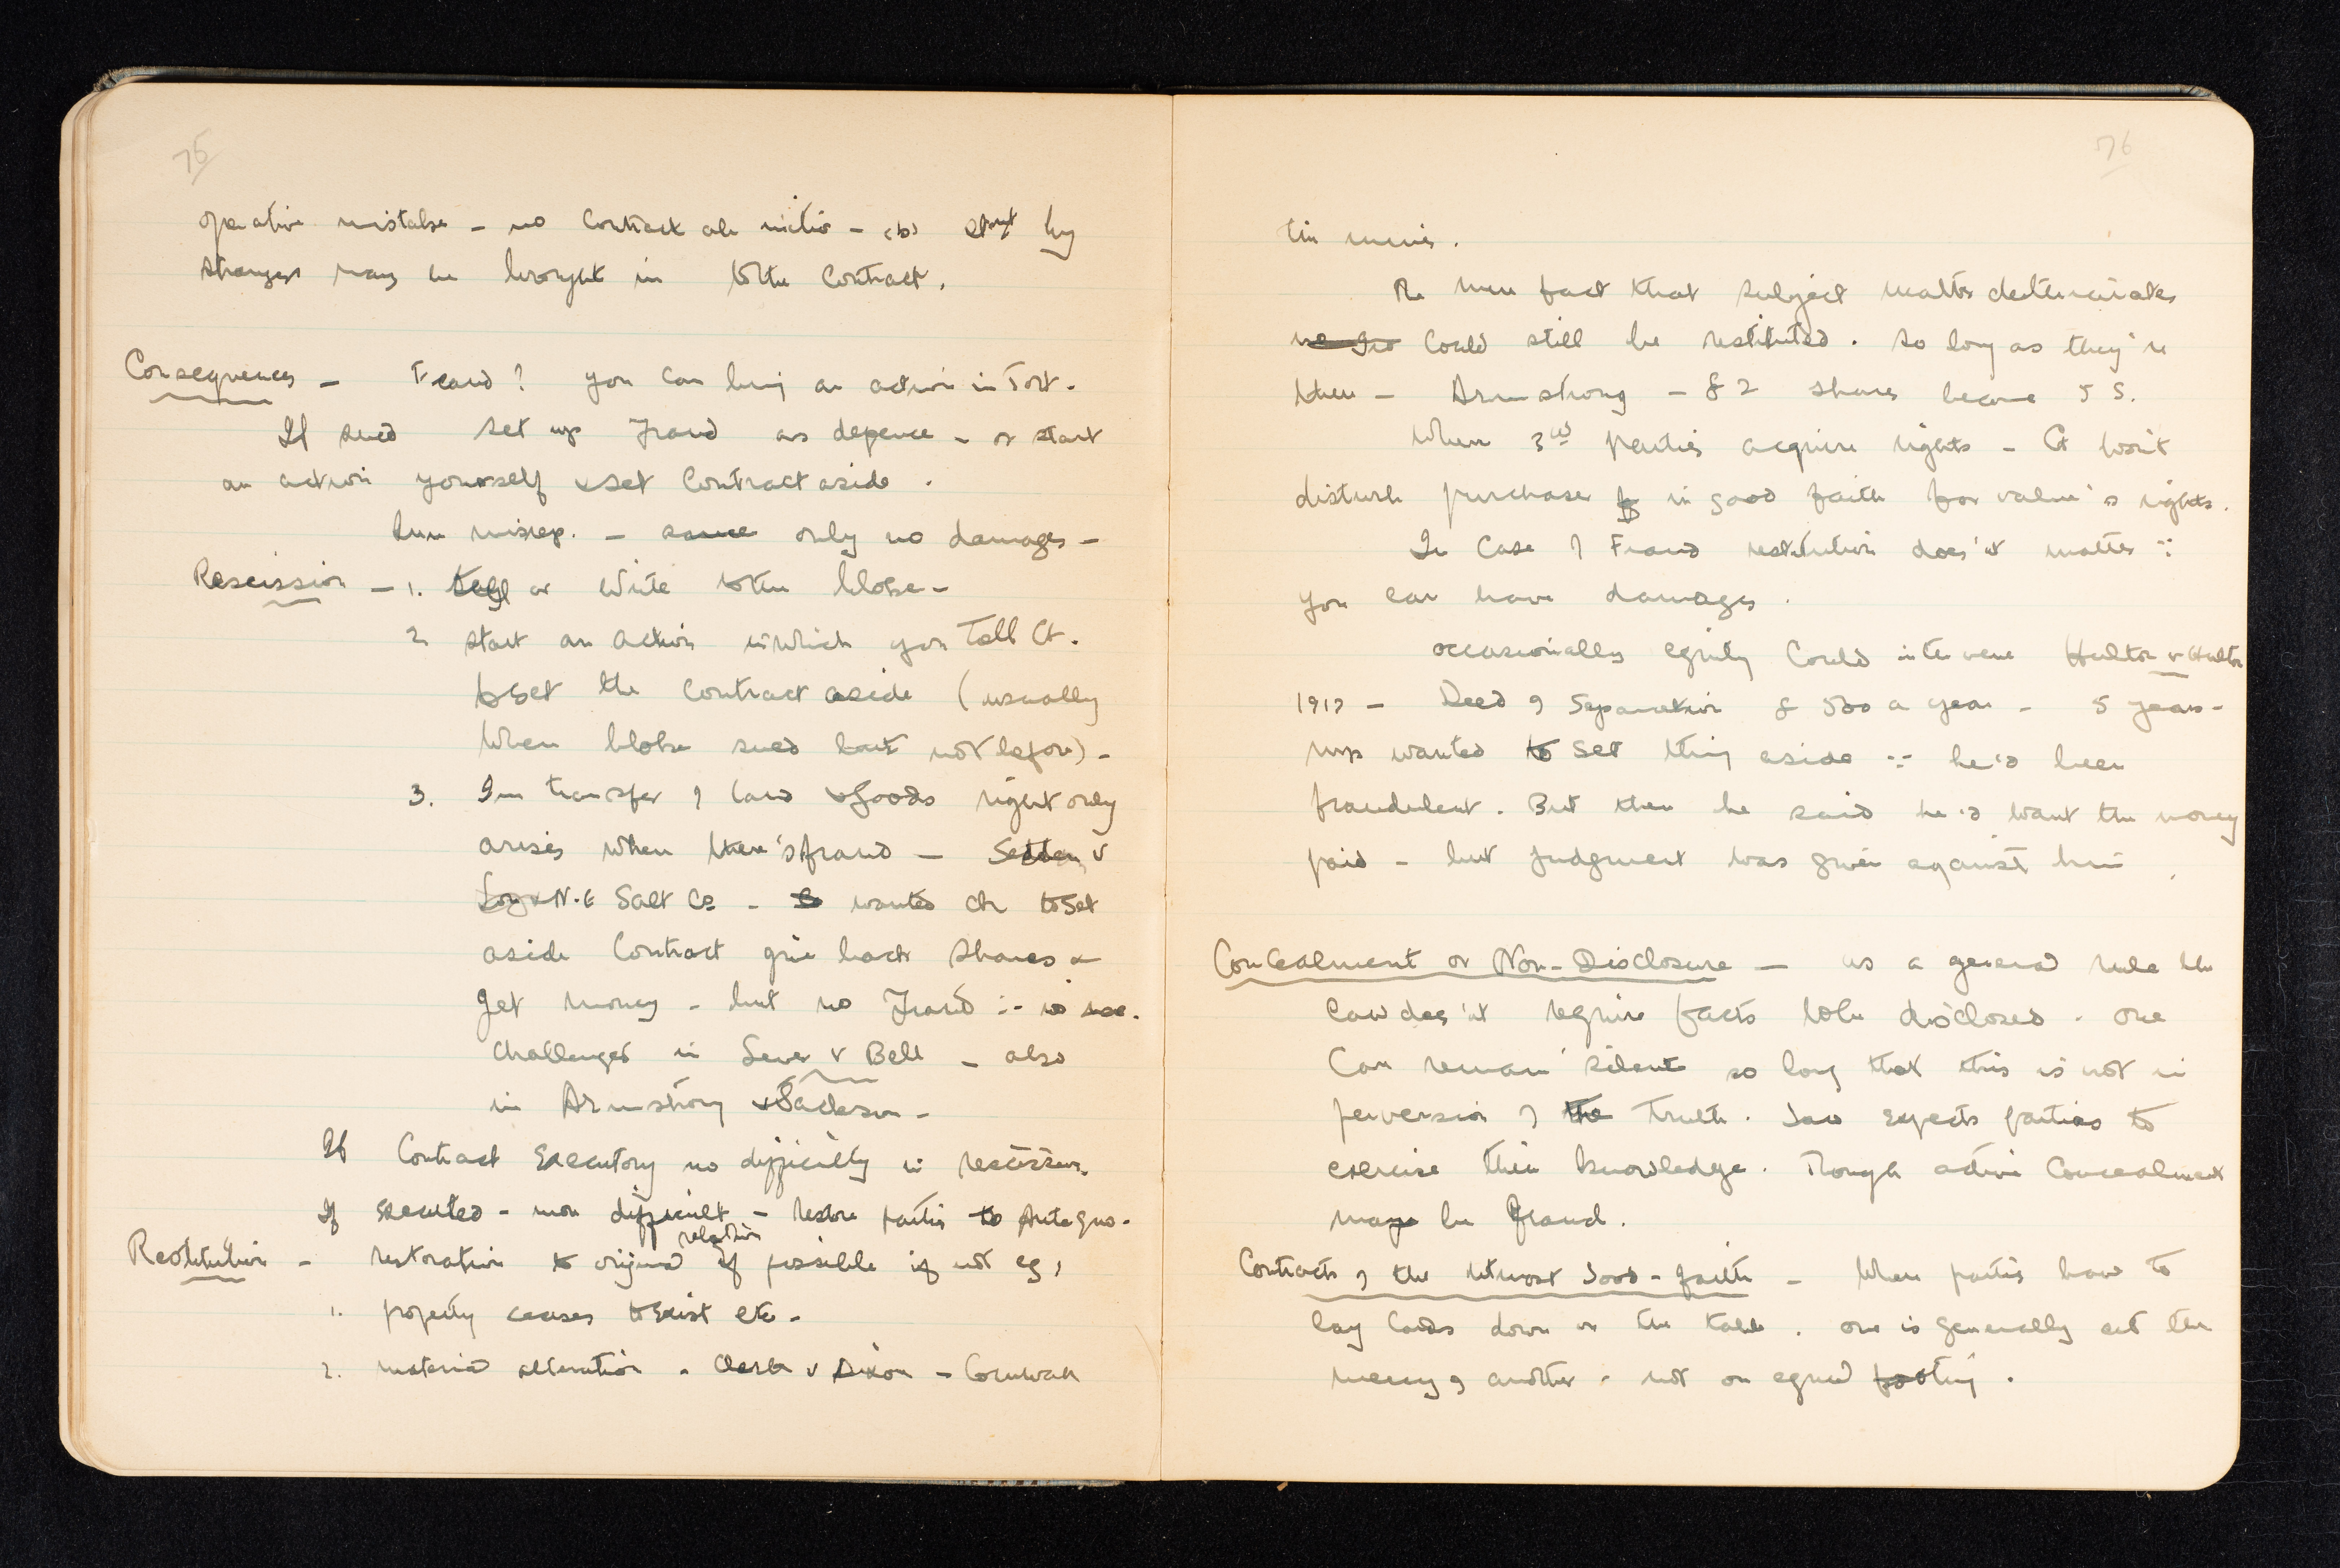 75
operative mistake - no Contract ab initio - (b) by
strangers may be brought in to the Contract.
Consequences - Fraud? you can bring an action in Tort.
If sued set up Fraud as defence - or start
an action yourself & set Contract aside.
Inn misrep. - same only no damages -
Rescission - 1. tell or write to the bloke -
2 start an action in which you Tell Ct.
to set the contract aside (usually
when bloke sued but not before) -
3. In transfer of land & goods right only
arises when there's fraud - Seddon v
N.E Salt Co - wanted ct to set
aside Contract give back shares &
get money - but no Fraud ∴ no
challenged in Lever v Bell - also
in Armstrong v Jackson -
If Contract Executory no difficulty in rescission.
If executed - more difficult - restore parties to
Restitution - restoration to original relation if possible if not eg,
1. property ceases to exist etc -
2. material alteration - Clark v Dixon - Cornwall
76
tin mines.
The mere fact that subject matter deteriorates
could still be restituted. So long as they're
there - Armstrong - £2 shares became 5 s.
When 3rd parties acquire rights - Ct won't
disturb purchaser in good faith for value's rights.
In Case of Fraud restitution does'nt matter ∵
you can have damages.
occasionally equity could intervene Hulton v Hulton
1917 - Deed of Separation £ 500 a year - 5 years -
wanted to set thing aside ∵ he'd been
fraudulent. But then he said he'd want the money
paid - but judgment was given against him.
Concealment or Non-Disclosure - as a general rule the
Law does'nt require facts to be disclosed. One
can remain silent so long that this is not in
perversion of the truth. Law expects parties to
exercise their knowledge. Though active Concealment
may be fraud.
Contracts of the utmost Good-faith - When parties have to
lay cards down on the table. one is generally at the
mercy of another - not on equal footing.